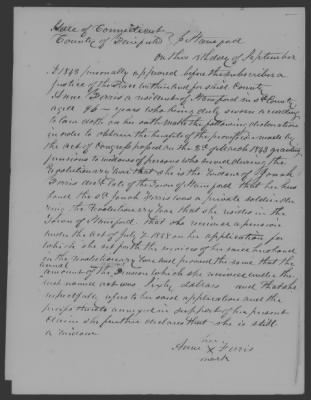 State of Connecticut
County of Fairfield } Stamford
On this 13th day of September
1843 personally appeared before the subscriber a
Justice of the Peace within and for said County
Anne Ferris a resident of Stamford in sd County
aged 86 years who being duly sworn according
to law doth on his oath make the following declaration
in order to obtain the benefits of the provision made by
the act of Congress passed on the 3d of March 1843 granting
pensions to widows of persons who served during the
Revolutionary War that she is the Widow of Jonah
Ferris decd late of the Town of Stamford that her hus
band the sd Jonah Ferris was a private soldier du
ring the Revolutionary War that she resides in the
Town of Stamford that she receives a pension
under the Act of July 7 1838 on her application for
which she set forth the services of her said husband
in the Revolutionary War and proved the same that the
annual
amount of the Pension which she received under the
last named act was sixty dollars and that she
respectfully refers to her said application and the
proofs thereto annexed in support of her present
claim she further declares that she is still
a widow
her
Anne X Ferris
mark